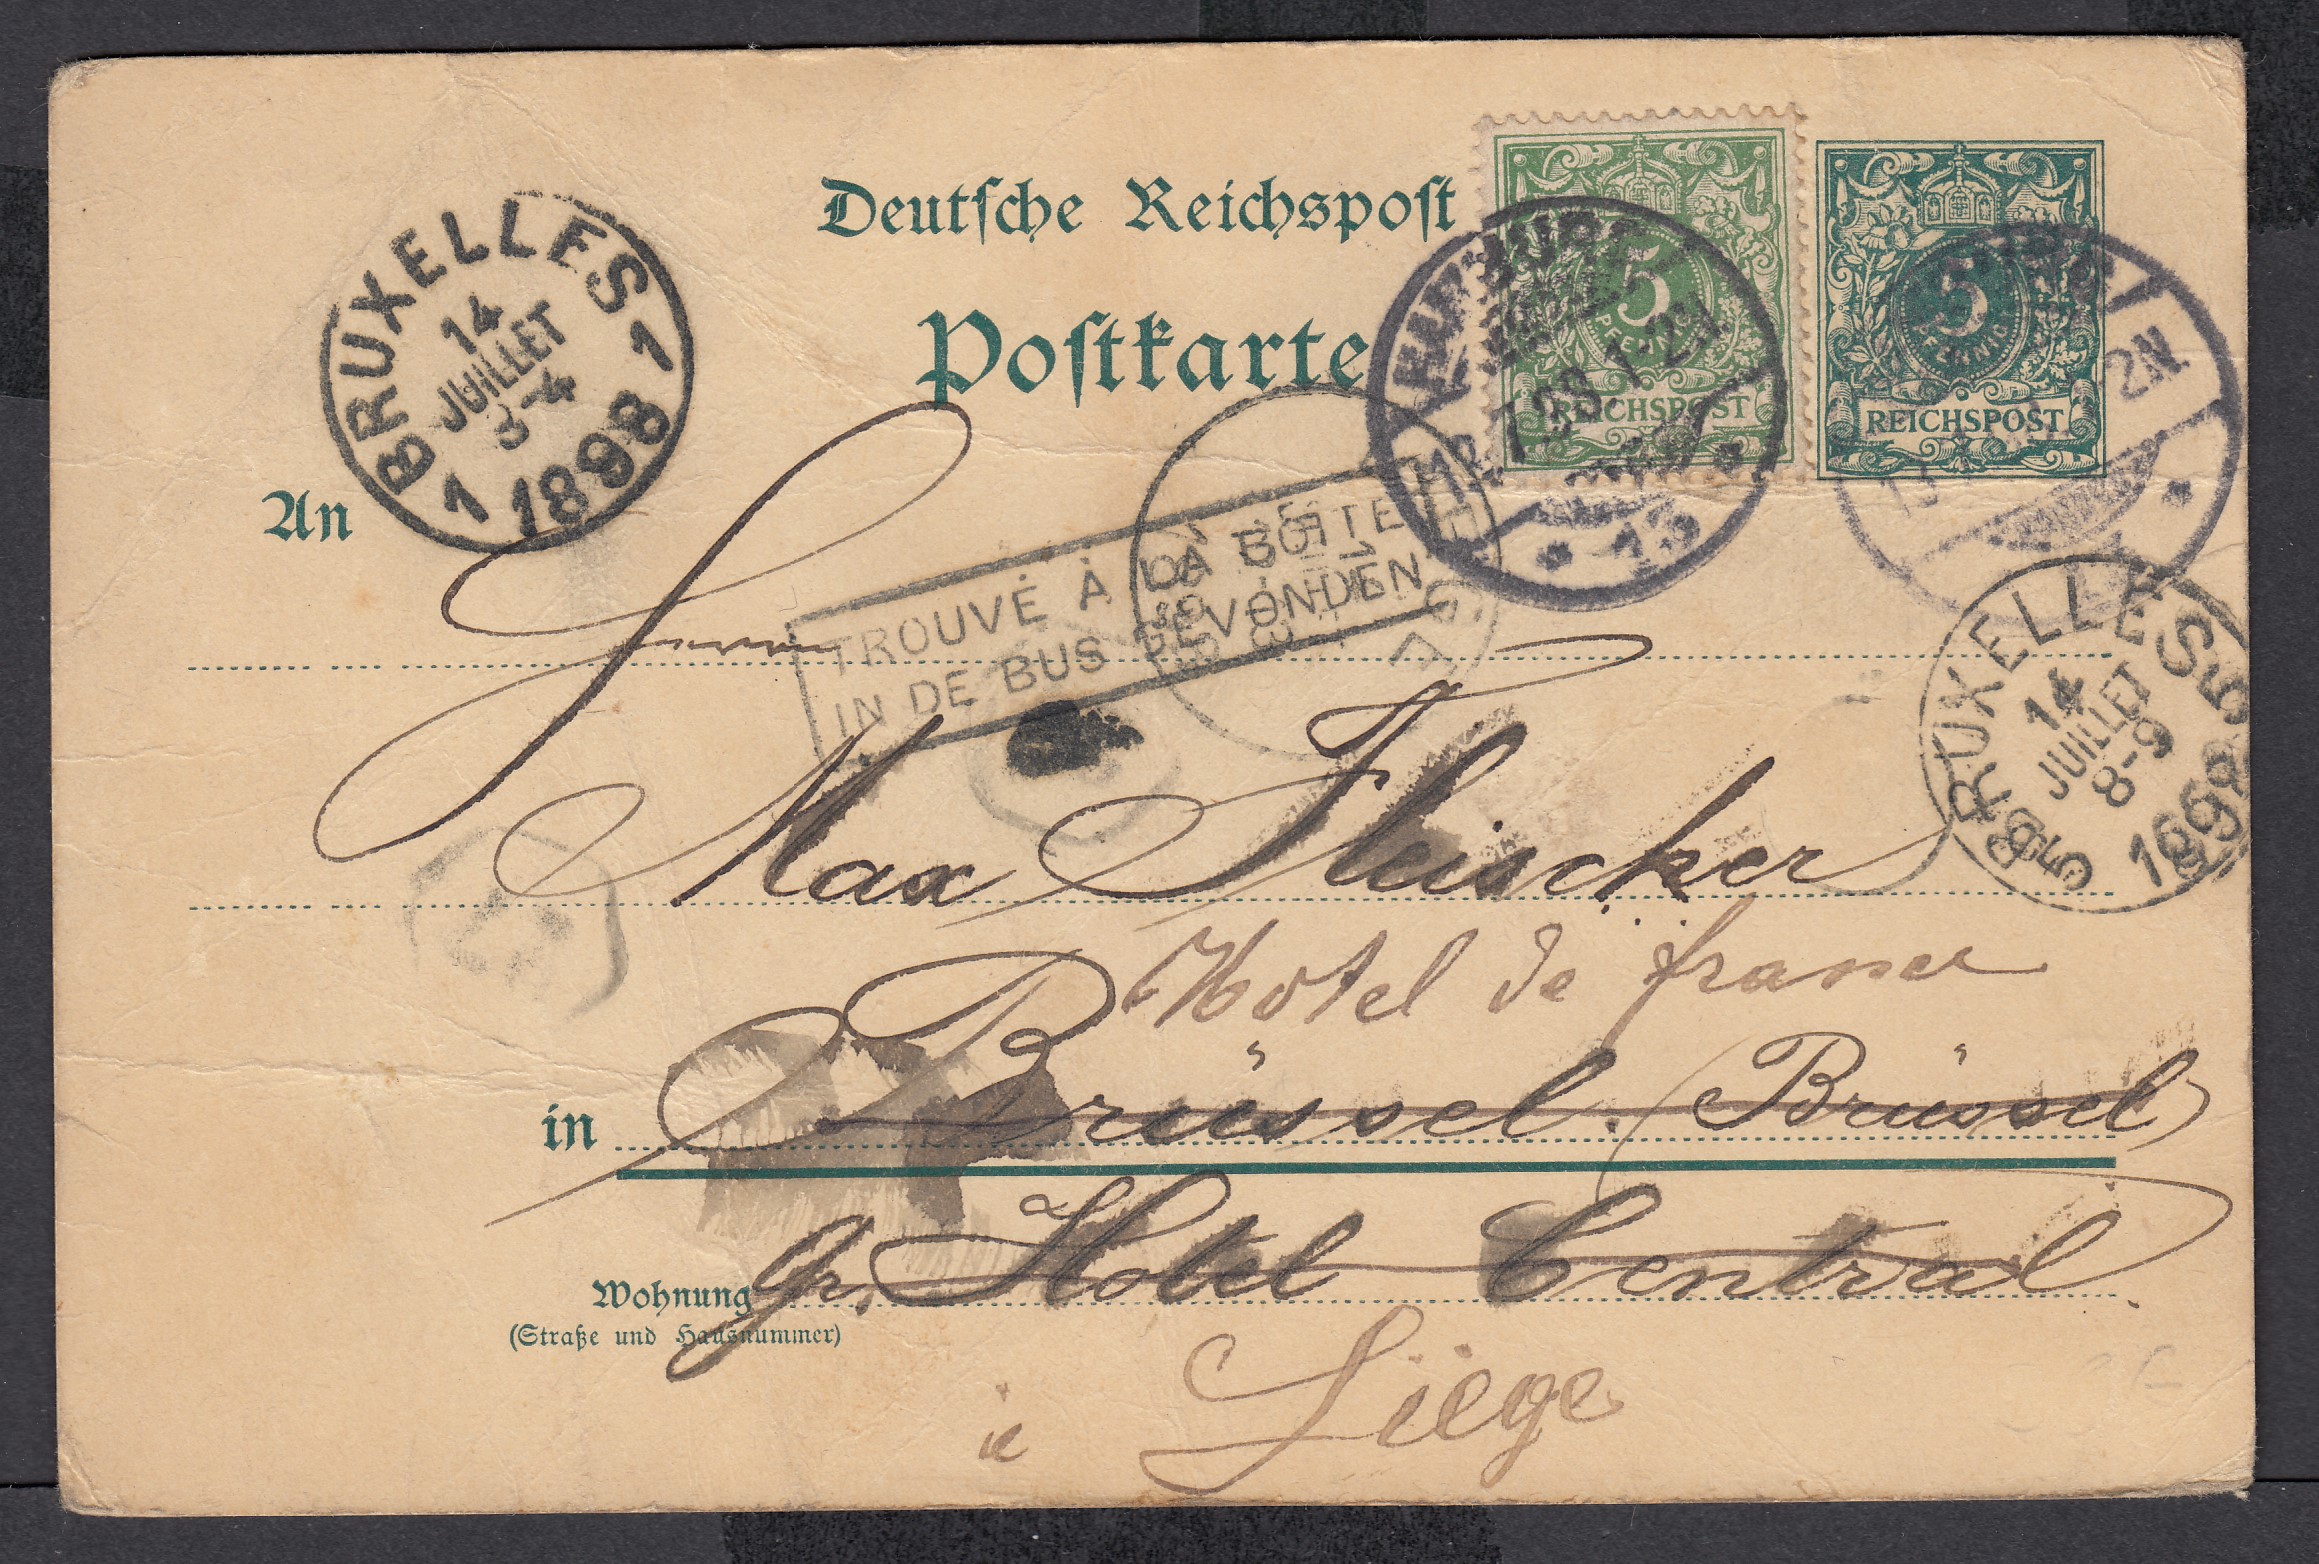 Deutsche Reichspost
Postkarte
5
PFENNIG
REICHSPOST
5
PFENNIG
REICHSPOST
HAMBURG
13.7.98.1-2N.
* 13 *
2N.
BRUXELLES 1
14
JUILLET
3-4
1 1898
TROUVÉ À LA BOITE
IN DE BUS GEVONDEN
BRUXELLES 5
14
JUILLET
8-9
5 1898
An
Herrn
Max Fleischer
Hotel de france
in Brüssel. (Brüssel)
Wohnung gr. Hotel Central.
(Straße und Hausnummer)
à Liège